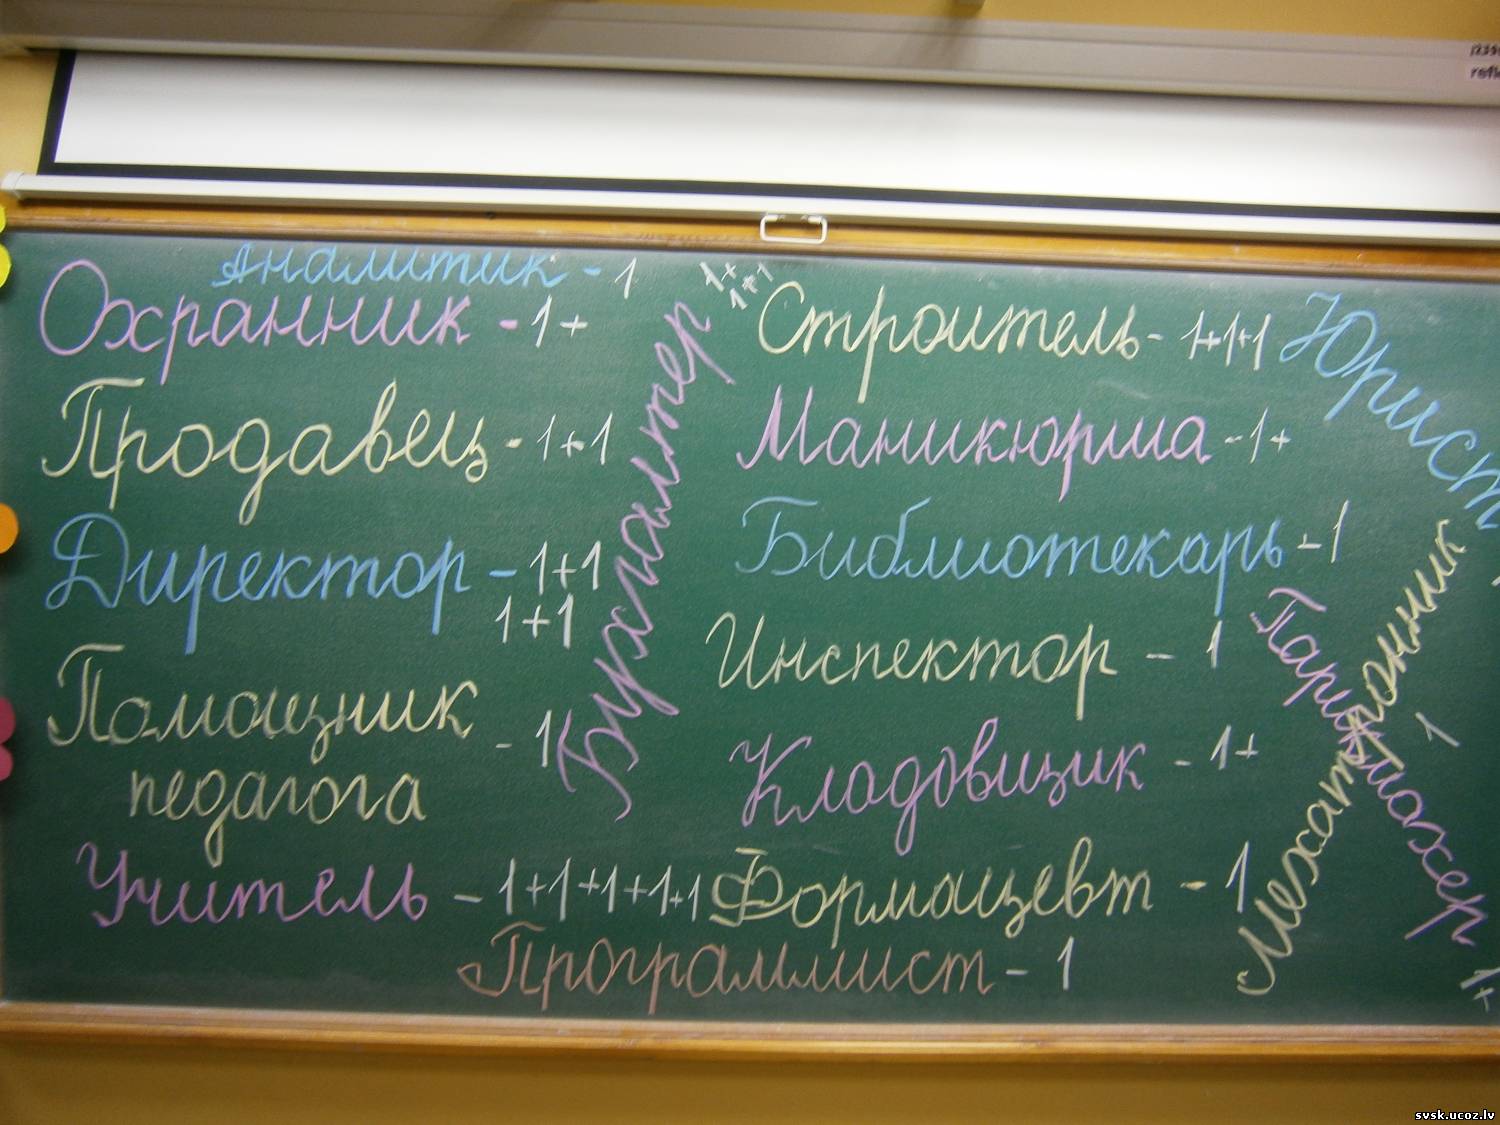 Аналитик - 1
Охранник - 1+
Продавец - 1+1
Директор - 1+1
1+1
Помощник
педагога
- 1
Учитель - 1+1+1+1+1
Программист - 1
Бухгалтер
1+
1+1
Строитель - 1+1+1
Маникюрша - 1+
Библиотекарь - 1
Инспектор - 1
Кладовщик - 1+
Фармацевт - 1
Юрист
Мехатронник
1
Парикмахер
1+
svsk.ucoz.lv